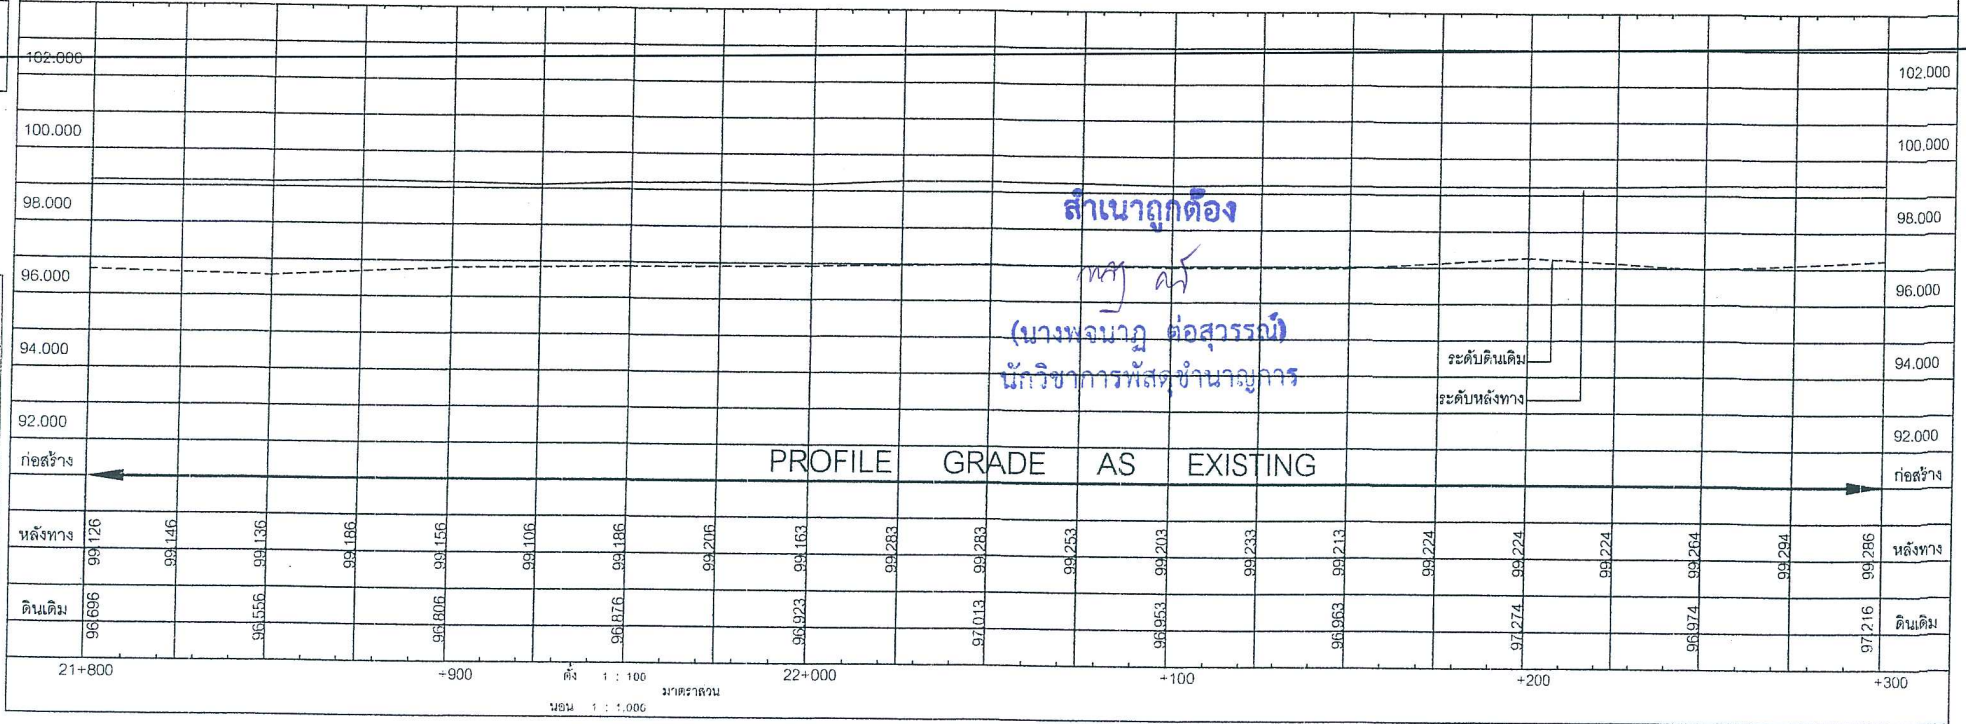 102.000 102.000
100.000 100.000
98.000 98.000
96.000 96.000
94.000 94.000
92.000 92.000
สำเนาถูกต้อง
(นางพจนาฏ ต่อสุวรรณ์)
นักวิชาการพัสดุชำนาญการ
ระดับดินเดิม
ระดับหลังทาง
ก่อสร้าง PROFILE GRADE AS EXISTING ก่อสร้าง
หลังทาง 99.126 99.146 99.136 99.186 99.156 99.106 99.186 99.206 99.163 99.283 99.283 99.253 99.203 99.233 99.213 99.224 99.224 99.224 99.264 99.294 99.286 หลังทาง
ดินเดิม 96.696 96.556 96.806 96.876 96.923 97.013 96.953 96.963 97.274 96.974 97.216 ดินเดิม
21+800 +900 22+000 +100 +200 +300
ตั้ง 1 : 100
มาตราส่วน
นอน 1 : 1,000